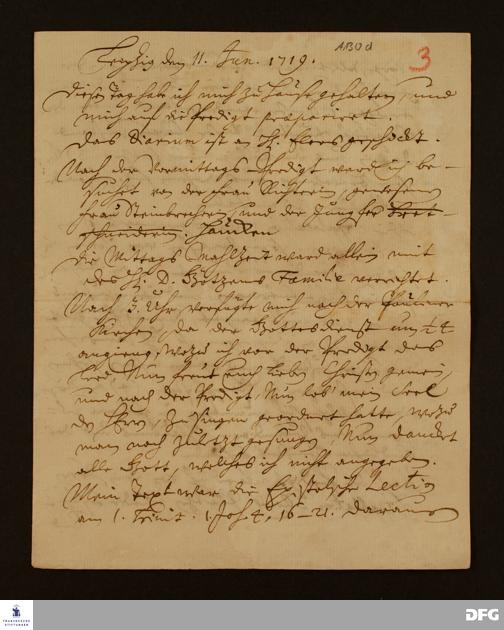 AB0d
3
Leipzig den 11. Jun. 1719.
Diesen Tag habe ich mich zu Hause gehalten, und
mich auf die Predigt præpariret.
Das Diarium ist an H. Elers geschickt.
Nach der Vormittags-Predigt ward ich be-
suchet von der Frau
Frau und der Jungfer
Die Mittags Mahlzeit ward allein mit
des H. D. Familie verrichtet.
Nach 3. Uhr verfügte mich nach der
Kirchen, da der Gottesdienst um
angieng, wozu ich vor der Predigt das
Lied, Nun freut euch lieben Christen gemein,
und nach der Predigt, Nun lob mein Seel
den Herrn, zu singen geordnet hatte, wozu
man noch zuletzt gesungen, Nun dancket
alle Gott, welches ich nicht angegeben.
Mein Text war die Epistolische Lection
am 1. Trinit. 1. Joh. 4, 16-21. daraus
FRANCKESCHE
STIFTUNGEN
DFG